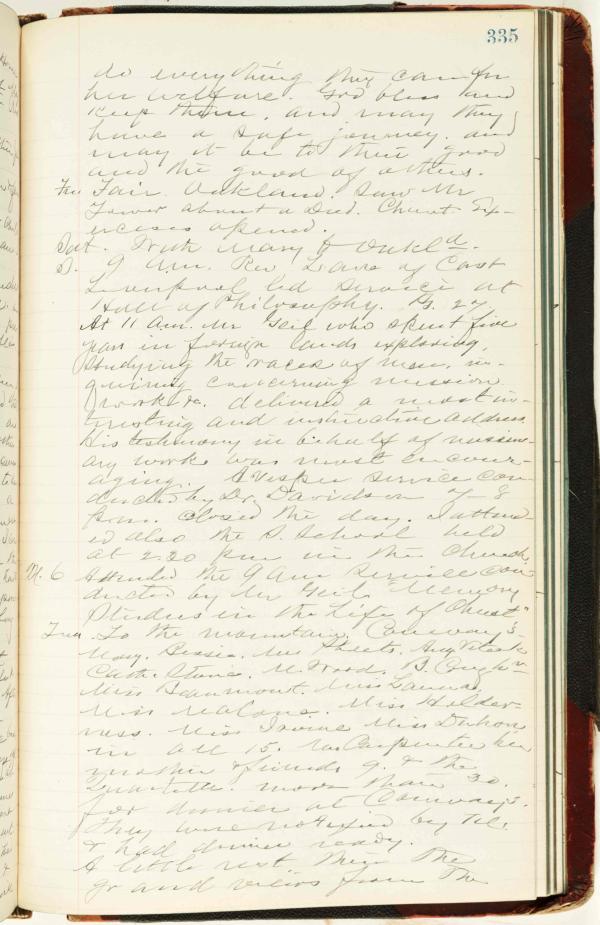 335
do everything they can for
her welfare. God bless and
keep them, and may they
have a safe journey, and
may it be to their good
and the good of others.
Fri Fair. Oakland. Saw Mr
Tower about a Deed. Chaut. Ex-
ercises opened.
Sat. With Mary to Oakld.
S. 9 Am. Rev. Laws of East
Liverpool led service at
Hall of Philosophy. Ps. 27
At 11 Am. Mr Geil who spent five
years in foreign lands exploring,
studying the races of men, in-
quiring concerning mission
work &c. delivered a most in-
tresting and instructive address
His testimony in behalf of mission-
ary work was most encour-
aging. A Vesper service con-
ducted by Dr. Davidson 7-8
p.m. closed the day. I attend-
ed also the S. School held
at 2.30 p.m in the Church.
M. 6 Attended the 9 Am service con-
ducted by Mr Geil. Memory
Studies in the Life of Christ"
Tue. To the mountain, Conway's.
Mary. Bessie. Mrs Sheets.
Cath. Stone. M. Wood. B.
Miss Beaumont. Miss
Miss Malone. Miss Holder-
ness. Miss Irvine Miss
in all 15. Mrs Carpenter her
mother & friends 9. & the
more than 30.
for dinner at Conways.
They were notified by Tel.
& had dinner ready.
A little rest then the
grand views from the